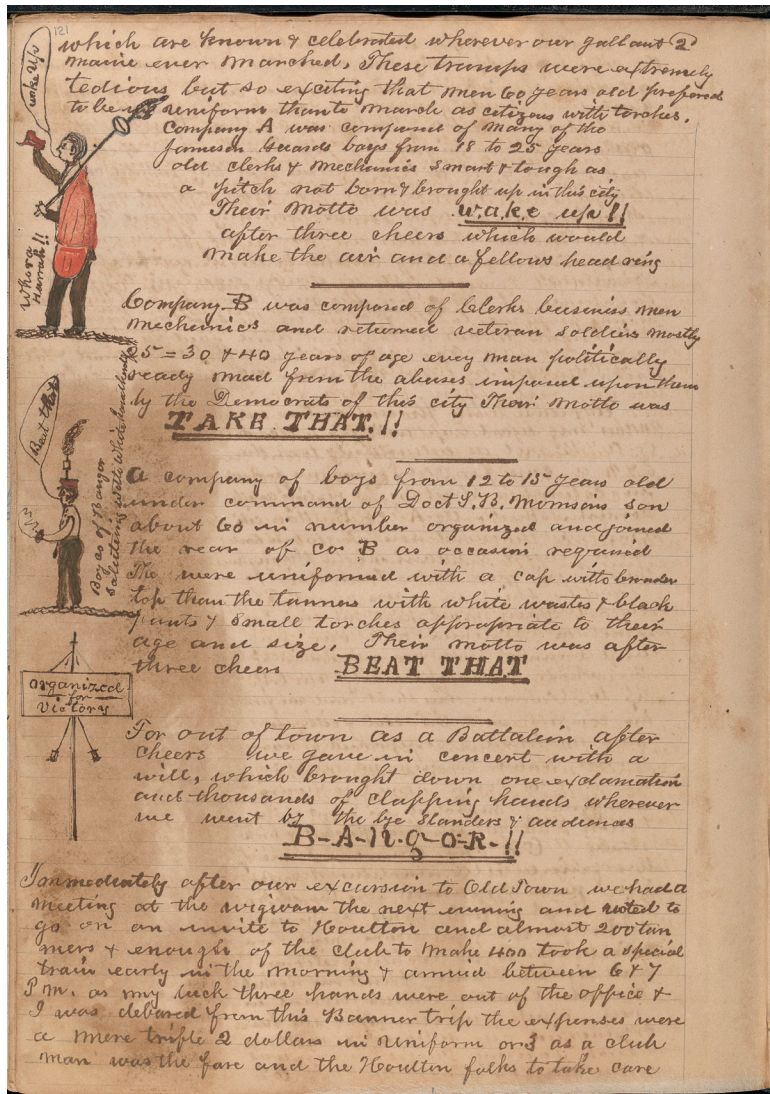 121
which are known & celebrated wherever our gallant 2
maine ever marched. These tramps were extremely
tedious but so exciting that men 60 years old prefered
to be in uniform than to march as citizens with torches.
Company A was composed of many of the
Jameson Guards boys from 18 to 25 years
old clerks & mechanics smart & tough as
a pitch not born & brought up in this city
Their Motto was wake up!!
after three cheers which would
make the air and a fellows head ring
Company B was composed of Clerks business men
mechanics and returned veteran soldiers mostly
25=30 & 40 years of age every man politically
ready mad from the abuses imposed upon them
by the Democrats of this city Their motto was
TAKE THAT.!!
a company of boys from 12 to 15 years old
under command of Doct S.B. Morrisons son
about 60 in number organized and joined
the rear of co B as occasion required
The were uniformed with a cap with broader
top than the tanners with white wastes & black
pants & small torches appropriate to their
age and size. Their motto was after
three cheers BEAT THAT
For out of town as a Battalion after
cheers we gave in concert with a
will, which brought down one exclamation
and thousands of clapping hands wherever
we went by the bye standers & audiences
B-A-N-G-O-R-!!
Immediately after our excursion to Old Town we had a
meeting at the wigwam the next evening and voted to
go on an invite to Houlton and almost 200 tan
ners & enough of the club to make 400 took a special
train early in the morning & arrived between 6 & 7
P.m. as my luck three hands were out of the office &
I was debared from this Banner trip the expenses were
a mere trifle 2 dollars in uniform or 3 as a club
man was the fare and the Houlton folks to take care
wake up
Whora
Harrah!!
Beat that
Boys of Bangor
Saluting with white
organized
for
Victory